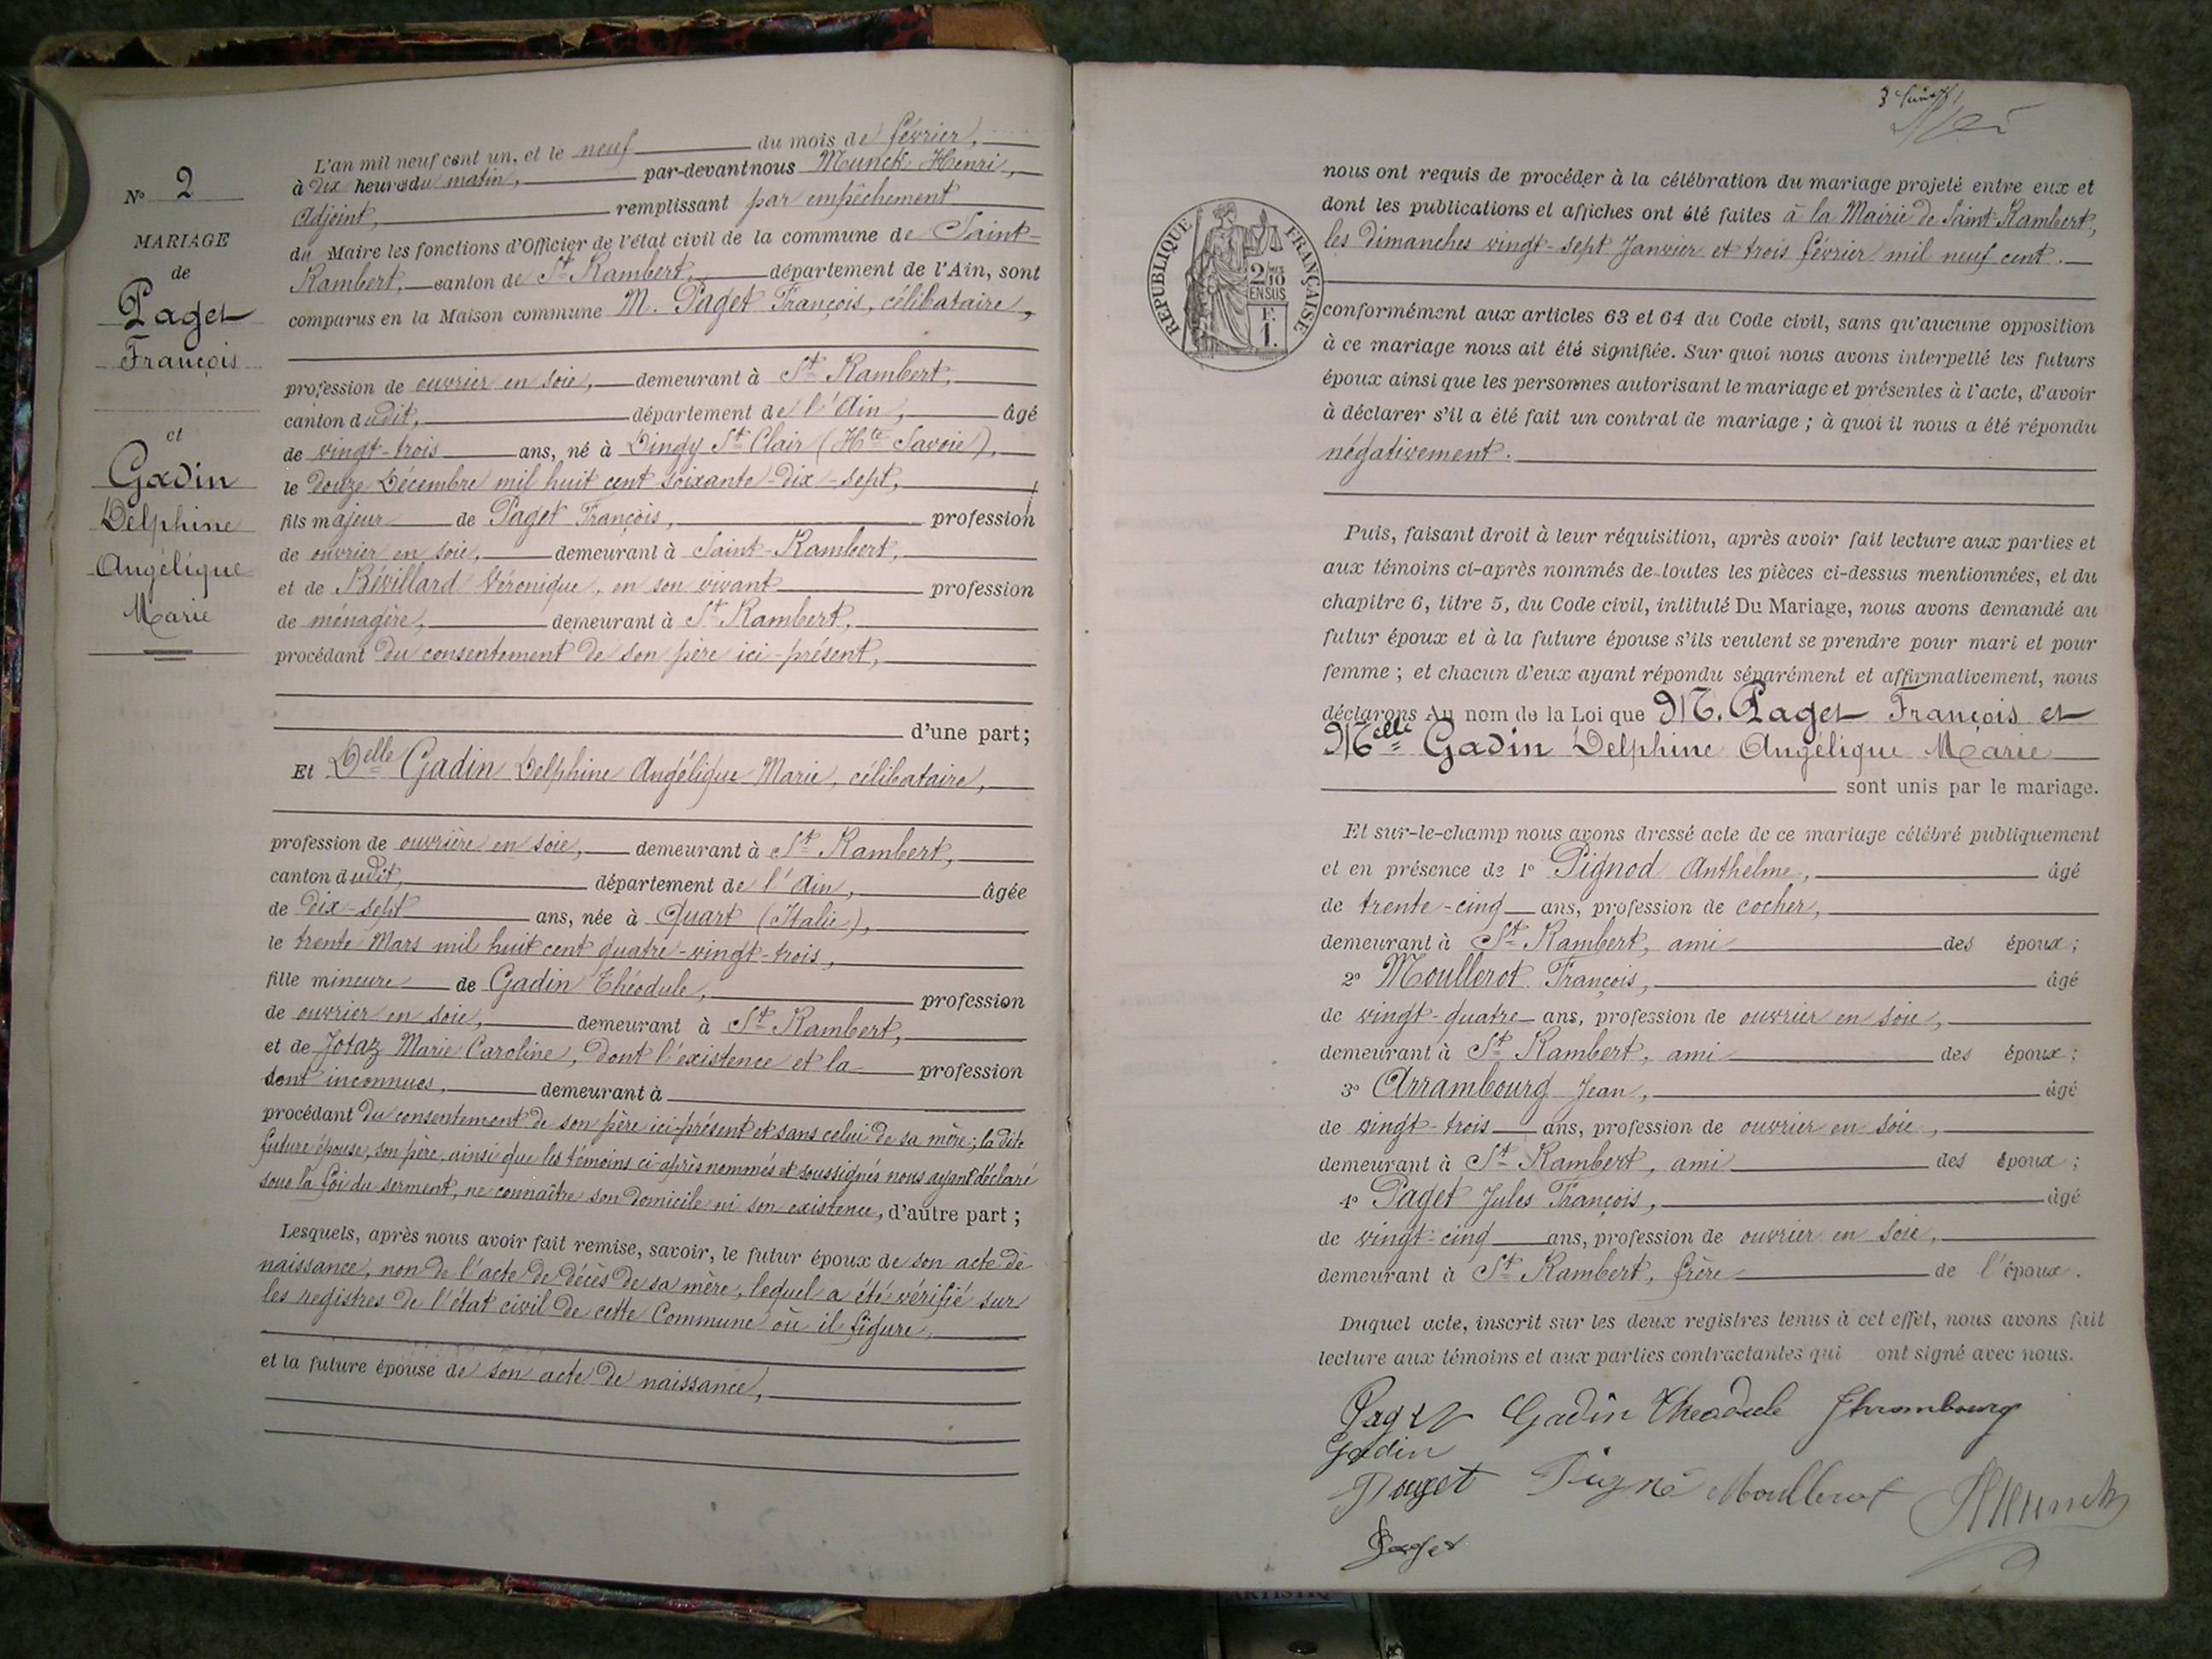 N° 2
MARIAGE
de
Paget
François
et
Gadin
Delphine
Angélique
Marie
L'an mil neuf cent un, et le neuf du mois de février,
à dix heures du matin, par-devant nous Munck Henri,
adjoint, remplissant par empêchement
du Maire les fonctions d'Officier de l'état civil de la commune de Saint-
Rambert, canton de St Rambert, département de l'Ain, sont
comparus en la Maison commune M. Paget François, célibataire,
profession de ouvrier en soie, demeurant à St Rambert,
canton dudit, département de l'Ain, âgé
de vingt-trois ans, né à Dingy St Clair (Hte Savoie),
le douze Décembre mil huit cent soixante-dix-sept,
fils majeur de Paget François, profession
de ouvrier en soie, demeurant à Saint-Rambert,
et de Révillard Véronique, en son vivant profession
de ménagère, demeurant à St Rambert,
procédant du consentement de son père ici-présent,
d'une part;
Et Delle Gadin Delphine Angélique Marie, célibataire,
profession de ouvrière en soie, demeurant à St Rambert,
canton dudit, département de l'Ain, âgée
de dix-sept ans, née à Quart (Italie),
le trente Mars mil huit cent quatre-vingt-trois,
fille mineure de Gadin Théodule, profession
de ouvrier en soie, demeurant à St Rambert,
et de Jotaz Marie Caroline, dont l'existence et la profession
sont inconnues, demeurant à
procédant du consentement de son père ici-présent et sans celui de sa mère; la dite
future épouse, son père, ainsi que les témoins ci-après nommés et soussignés nous ayant déclaré
sous la foi du serment, ne connaître son domicile ni son existence, d'autre part;
Lesquels, après nous avoir fait remise, savoir, le futur époux de son acte de
naissance, non de l'acte de décès de sa mère, lequel a été vérifié sur
les registres de l'état civil de cette Commune où il figure,
et la future épouse de son acte de naissance,
RÉPUBLIQUE FRANÇAISE
2/10
EN SUS
F.
1.
nous ont requis de procéder à la célébration du mariage projeté entre eux et
dont les publications et affiches ont été faites à la Mairie de Saint-Rambert,
les dimanches vingt-sept Janvier et trois février mil neuf cent.
conformément aux articles 63 et 64 du Code civil, sans qu'aucune opposition
à ce mariage nous ait été signifiée. Sur quoi nous avons interpellé les futurs
époux ainsi que les personnes autorisant le mariage et présentes à l'acte, d'avoir
à déclarer s'il a été fait un contrat de mariage; à quoi il nous a été répondu
négativement.
Puis, faisant droit à leur réquisition, après avoir fait lecture aux parties et
aux témoins ci-après nommés de toutes les pièces ci-dessus mentionnées, et du
chapitre 6, titre 5, du Code civil, intitulé Du Mariage, nous avons demandé au
futur époux et à la future épouse s'ils veulent se prendre pour mari et pour
femme; et chacun d'eux ayant répondu séparément et affirmativement, nous
déclarons Au nom de la Loi que M. Paget François et
Melle Gadin Delphine Angélique Marie
sont unis par le mariage.
Et sur-le-champ nous avons dressé acte de ce mariage célébré publiquement
et en présence de 1° Pignod Anthelme, âgé
de trente-cinq ans, profession de cocher,
demeurant à St Rambert, ami des époux;
2° Moullerot François, âgé
de vingt-quatre ans, profession de ouvrier en soie,
demeurant à St Rambert, ami des époux;
3° Arrambourg Jean, âgé
de vingt-trois ans, profession de ouvrier en soie,
demeurant à St Rambert, ami des époux;
4° Paget Jules François, âgé
de vingt-cinq ans, profession de ouvrier en soie,
demeurant à St Rambert, frère de l'époux.
Duquel acte, inscrit sur les deux registres tenus à cet effet, nous avons fait
lecture aux témoins et aux parties contractantes qui ont signé avec nous.
Paget Gadin Theodule Arrambourg
Gadin
Paget Moullerot HMunck
Paget